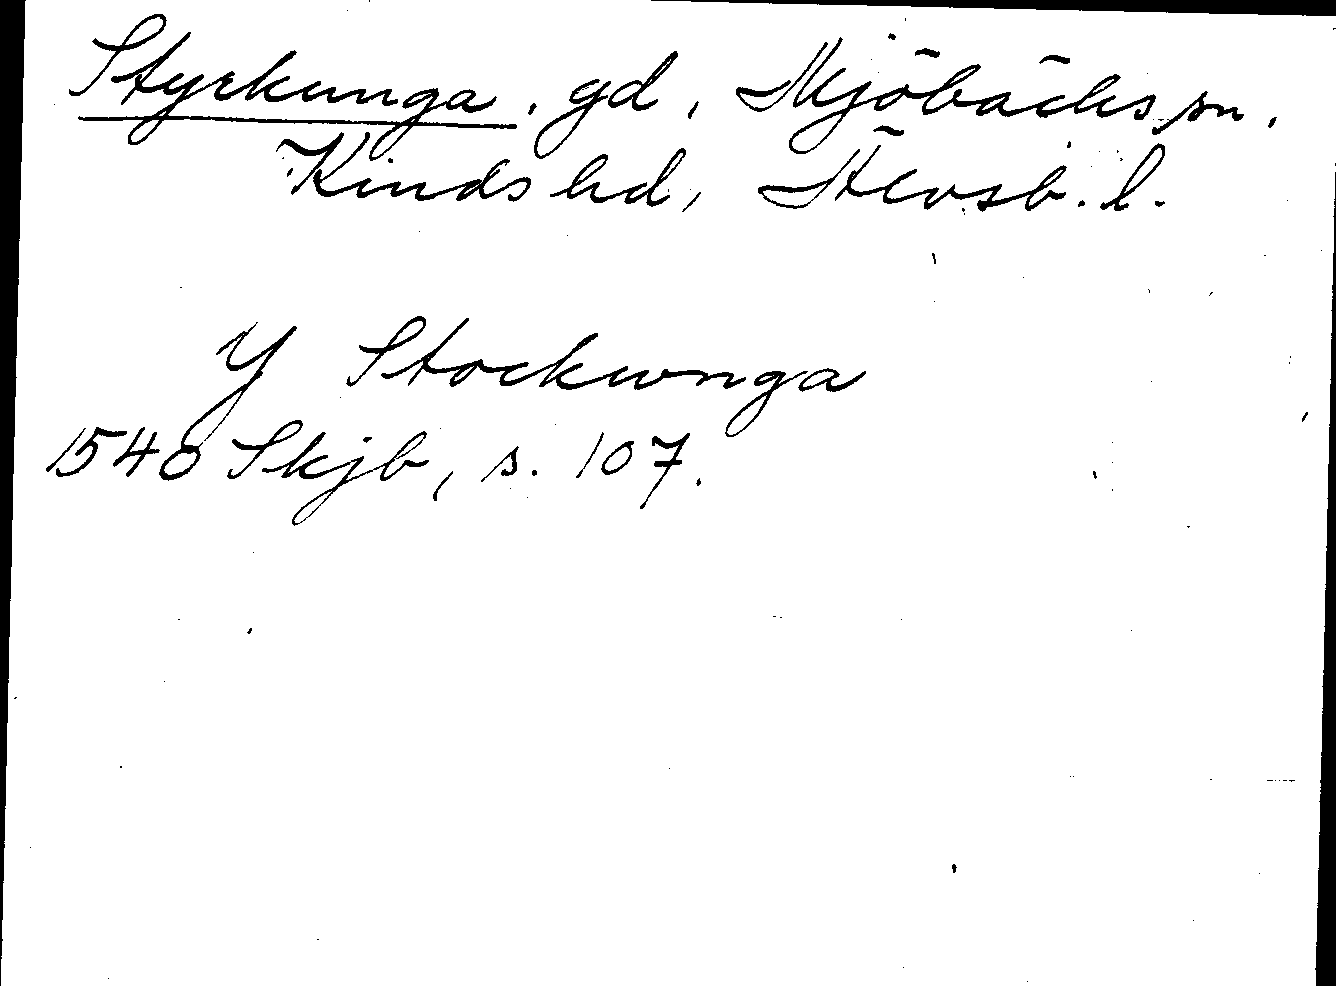 Styrkunga, gd, Mjöbäcks sn.
Kinds hd, Älvsb. l.
Y Stockunga
1540 Skjb, s. 107.